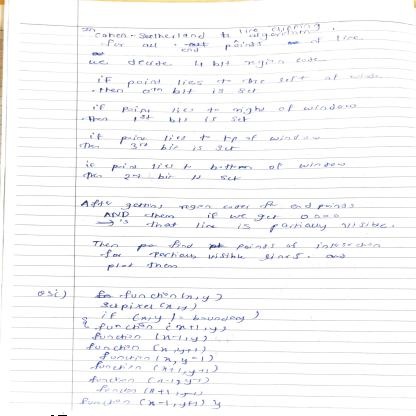 In
Cohen-Sutherland line clipping algorithm
for all end points of line
we decide 4 bit region code
if point lies to the left of window
then 0th bit is set
if point lies to right of window
then 1st bit is set
if point lies to top of window
then 3rd bit is set
if point lies to bottom of window
then 2nd bit is set
After getting region codes of end points
AND them if we get 0000
that line is partially visible.
Then find points of intersection
for partially visible lines. and
plot them
Q5i) function(x,y)
setpixel(x,y)
if (x,y != boundary)
{ function (x+1,y)
function (x-1,y)
function (x,y+1)
function (x,y-1)
function (x+1,y+1)
function
function
function (x-1,y+1) }